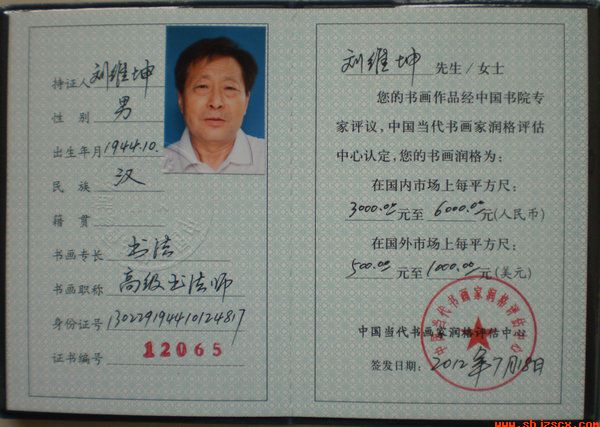 持证人 刘维坤
性 别 男
出生年月 1944.10.
民 族 汉
籍 贯
书画专长 书法
书画职称 高级书法师
身份证号 130229194410124817
证书编号 12065
刘维坤 先生/女士
您的书画作品经中国书院专
家评议，中国当代书画家润格评估
中心认定，您的书画润格为：
在国内市场上每平方尺：
3000.00元至 6000.00元(人民币)
在国外市场上每平方尺：
500.00 元至 1000.00元(美元)
中国当代书画家润格评估中心
中国当代书画家润格评估中心
签发日期：2012年7月18日
www.shjzscx.com